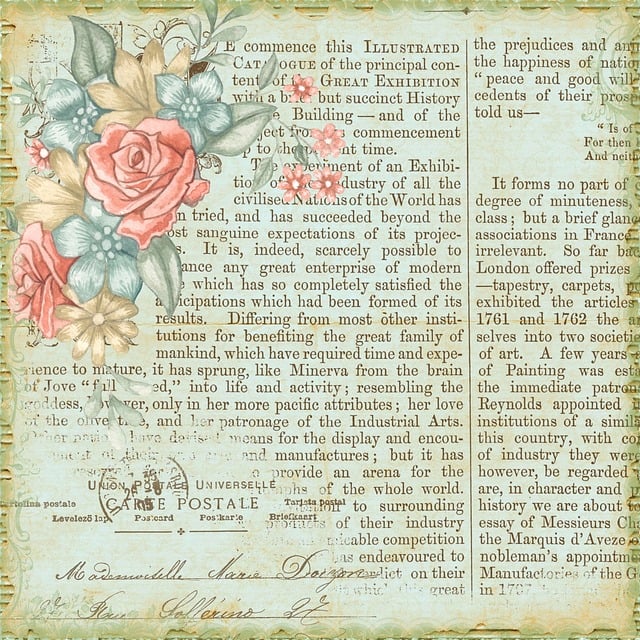 E commence this ILLUSTRATED
CATALOGUE of the principal con-
tent of GREAT EXHIBITION
with a but succinct History
Building — and of the
commencement
to time.
The experiment of an Exhibi-
of industry of all the
civilised Nations of the World has
n tried, and has succeeded beyond the
ost sanguine expectations of its projec-
s. It is, indeed, scarcely possible to
ance any great enterprise of modern
which has so completely satisfied the
icipations which had been formed of its
results. Differing from most other insti-
tutions for benefiting the great family of
mankind, which have required time and expe-
rience to mature, it has sprung, like Minerva from the brain
of Jove "full ed," into life and activity; resembling the
goddess, however, only in her more pacific attributes; her love
of the olive tree, and her patronage of the Industrial Arts.
have devised means for the display and encou-
of their and manufactures; but it has
provide an arena for the
of the whole world.
to surrounding
products of their industry
competition
has endeavoured to
on their
great
the prejudices and
the happiness of natio
"peace and good will
cedents of their
told us—
"Is of
For then
And neit
It forms no part of
degree of minuteness,
class; but a brief glan
associations in France
irrelevant. So far ba
London offered prizes
—tapestry, carpets,
exhibited the articles
1761 and 1762 the
selves into two societie
of art. A few years
of Painting was est
the immediate patron
Reynolds appointed
institutions of a simil
this country, with co
of industry they wer
however, be regarded
are, in character and
history we are about t
essay of Messieurs Cl
the Marquis d'Aveze
nobleman's appointm
Manufactories of the G
in
UNION POSTALE UNIVERSELLE
CARTE POSTALE
Cartolina postale
Levelező lap Postcard Postkarte Briefkaart
Mademoiselle Marie
27